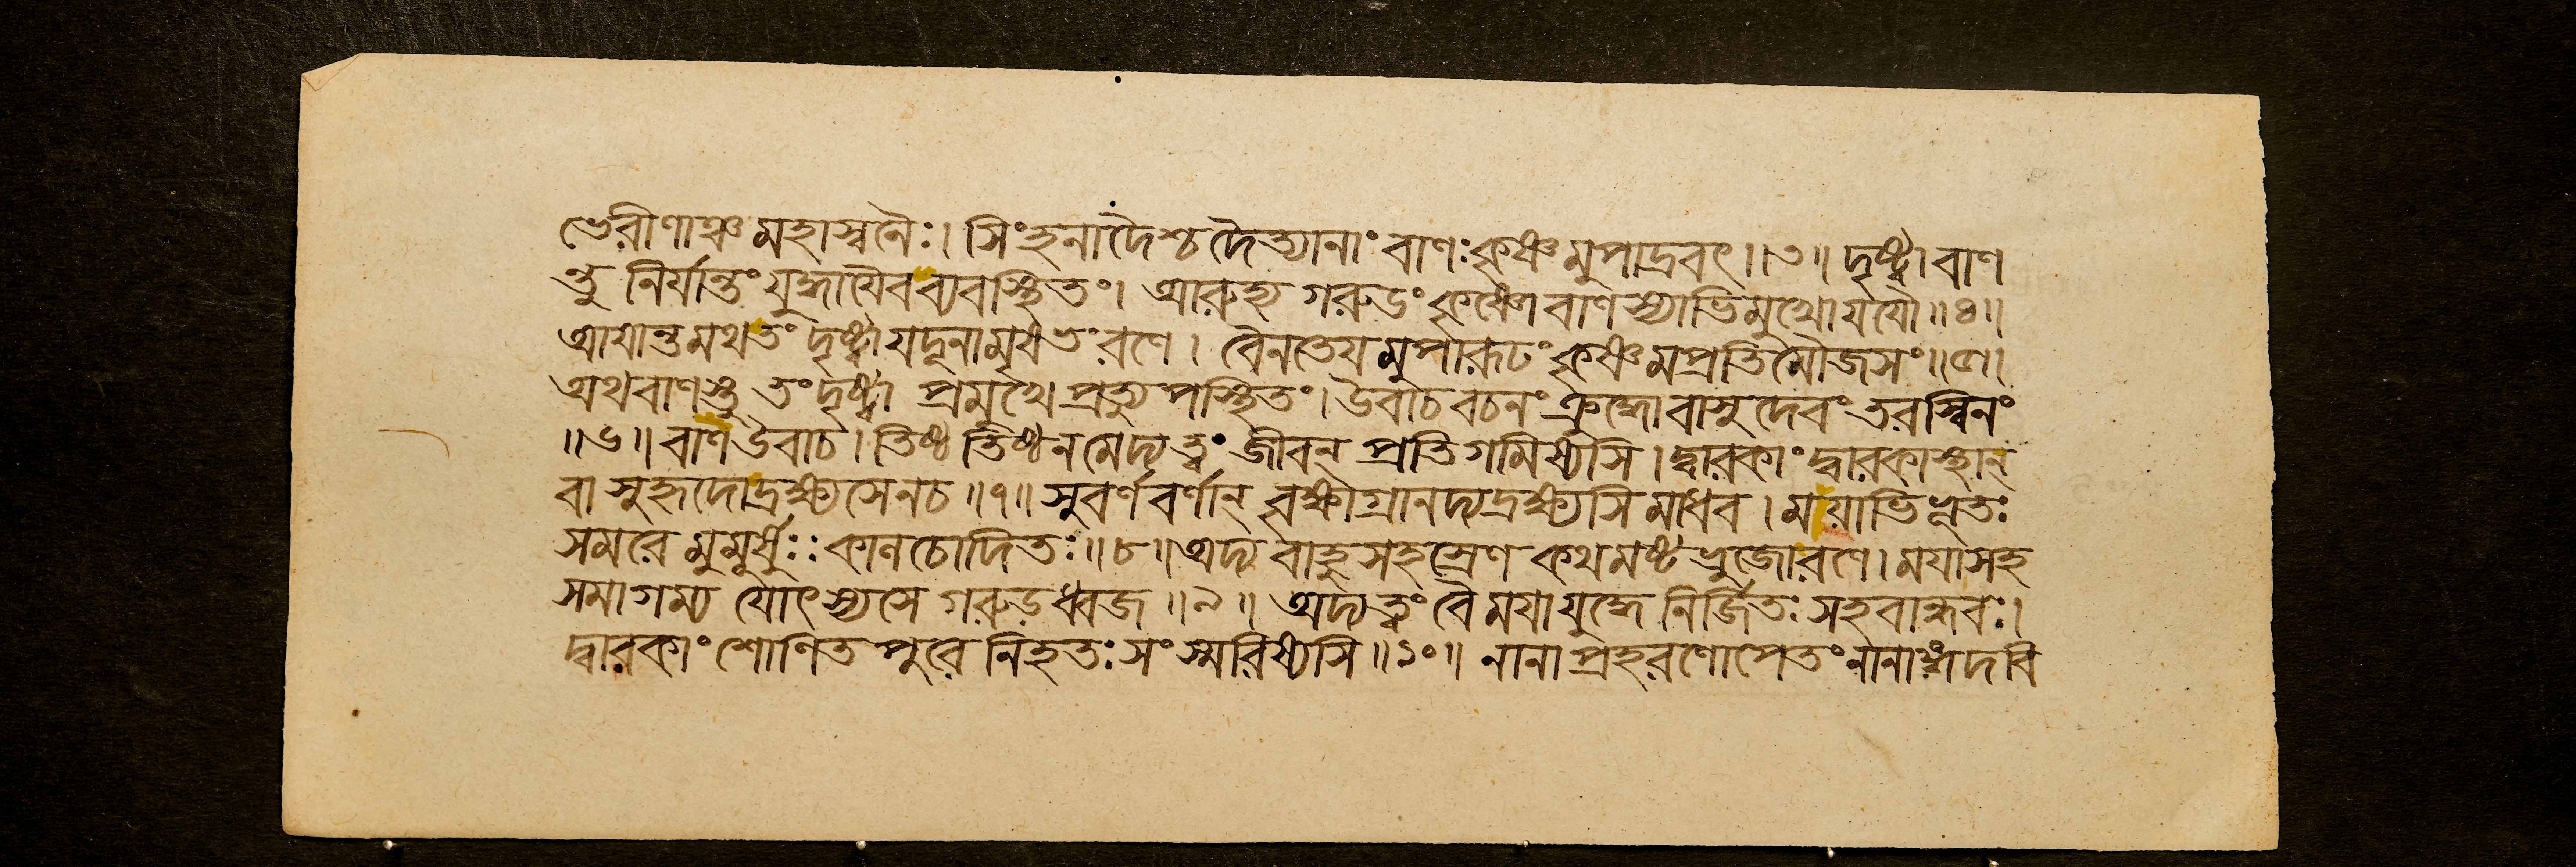 ভেরীণাঞ্চ মহাস্বনৈঃ। সিংহনাদৈশ্চ দৈত্যানাং বাণঃ কৃষ্ণমুপাদ্রবৎ।।৩॥ দৃষ্ট্বা বাণ
ন্তু নির্যান্তং যুদ্ধায়ৈব ব্যবস্থিতং। আরুহ্য গরুডং কৃষ্ণো বাণস্যাভিমুখো যযৌ॥৪॥
আয়ান্তমথ তং দৃষ্ট্বা যদূনামৃষভং রণে। বৈনতেয়মুপারূঢং কৃষ্ণমপ্রতিমৌজসং॥৫।
অথ বাণস্তু তং দৃষ্ট্বা প্রমুখে প্রত্যুপস্থিতং। উবাচ বচনং ক্রুদ্ধো বাসুদেবং তরস্বিনং
॥৬॥ বাণ উবাচ। তিষ্ঠ তিষ্ঠ ন মেদ্য ত্বং জীবন্ প্রতিগমিষ্যসি। দ্বারকাং দ্বারকাস্থান্
বা সুহৃদো দ্রক্ষ্যসে ন চ॥৭॥ সুবর্ণবর্ণান্ বৃক্ষাগ্রানদ্য দ্রক্ষ্যসি মাধব। ময়াভিভূতঃ
সমরে মুমূর্ষুঃ কানচোদিতঃ॥৮॥ অদ্য বাহুসহস্রেণ কথমষ্টভুজো রণে। ময়া সহ
সমাগম্য যোৎস্যসে গরুড়ধ্বজ॥৯॥ অদ্য ত্বং বৈ ময়া যুদ্ধে নির্জিতঃ সহবান্ধবঃ।
দ্বারকাং শোণিতপুরে নিহতঃ সংস্মরিষ্যসি॥১০॥ নানাপ্রহরণোপেতং নানাঙ্গদবি